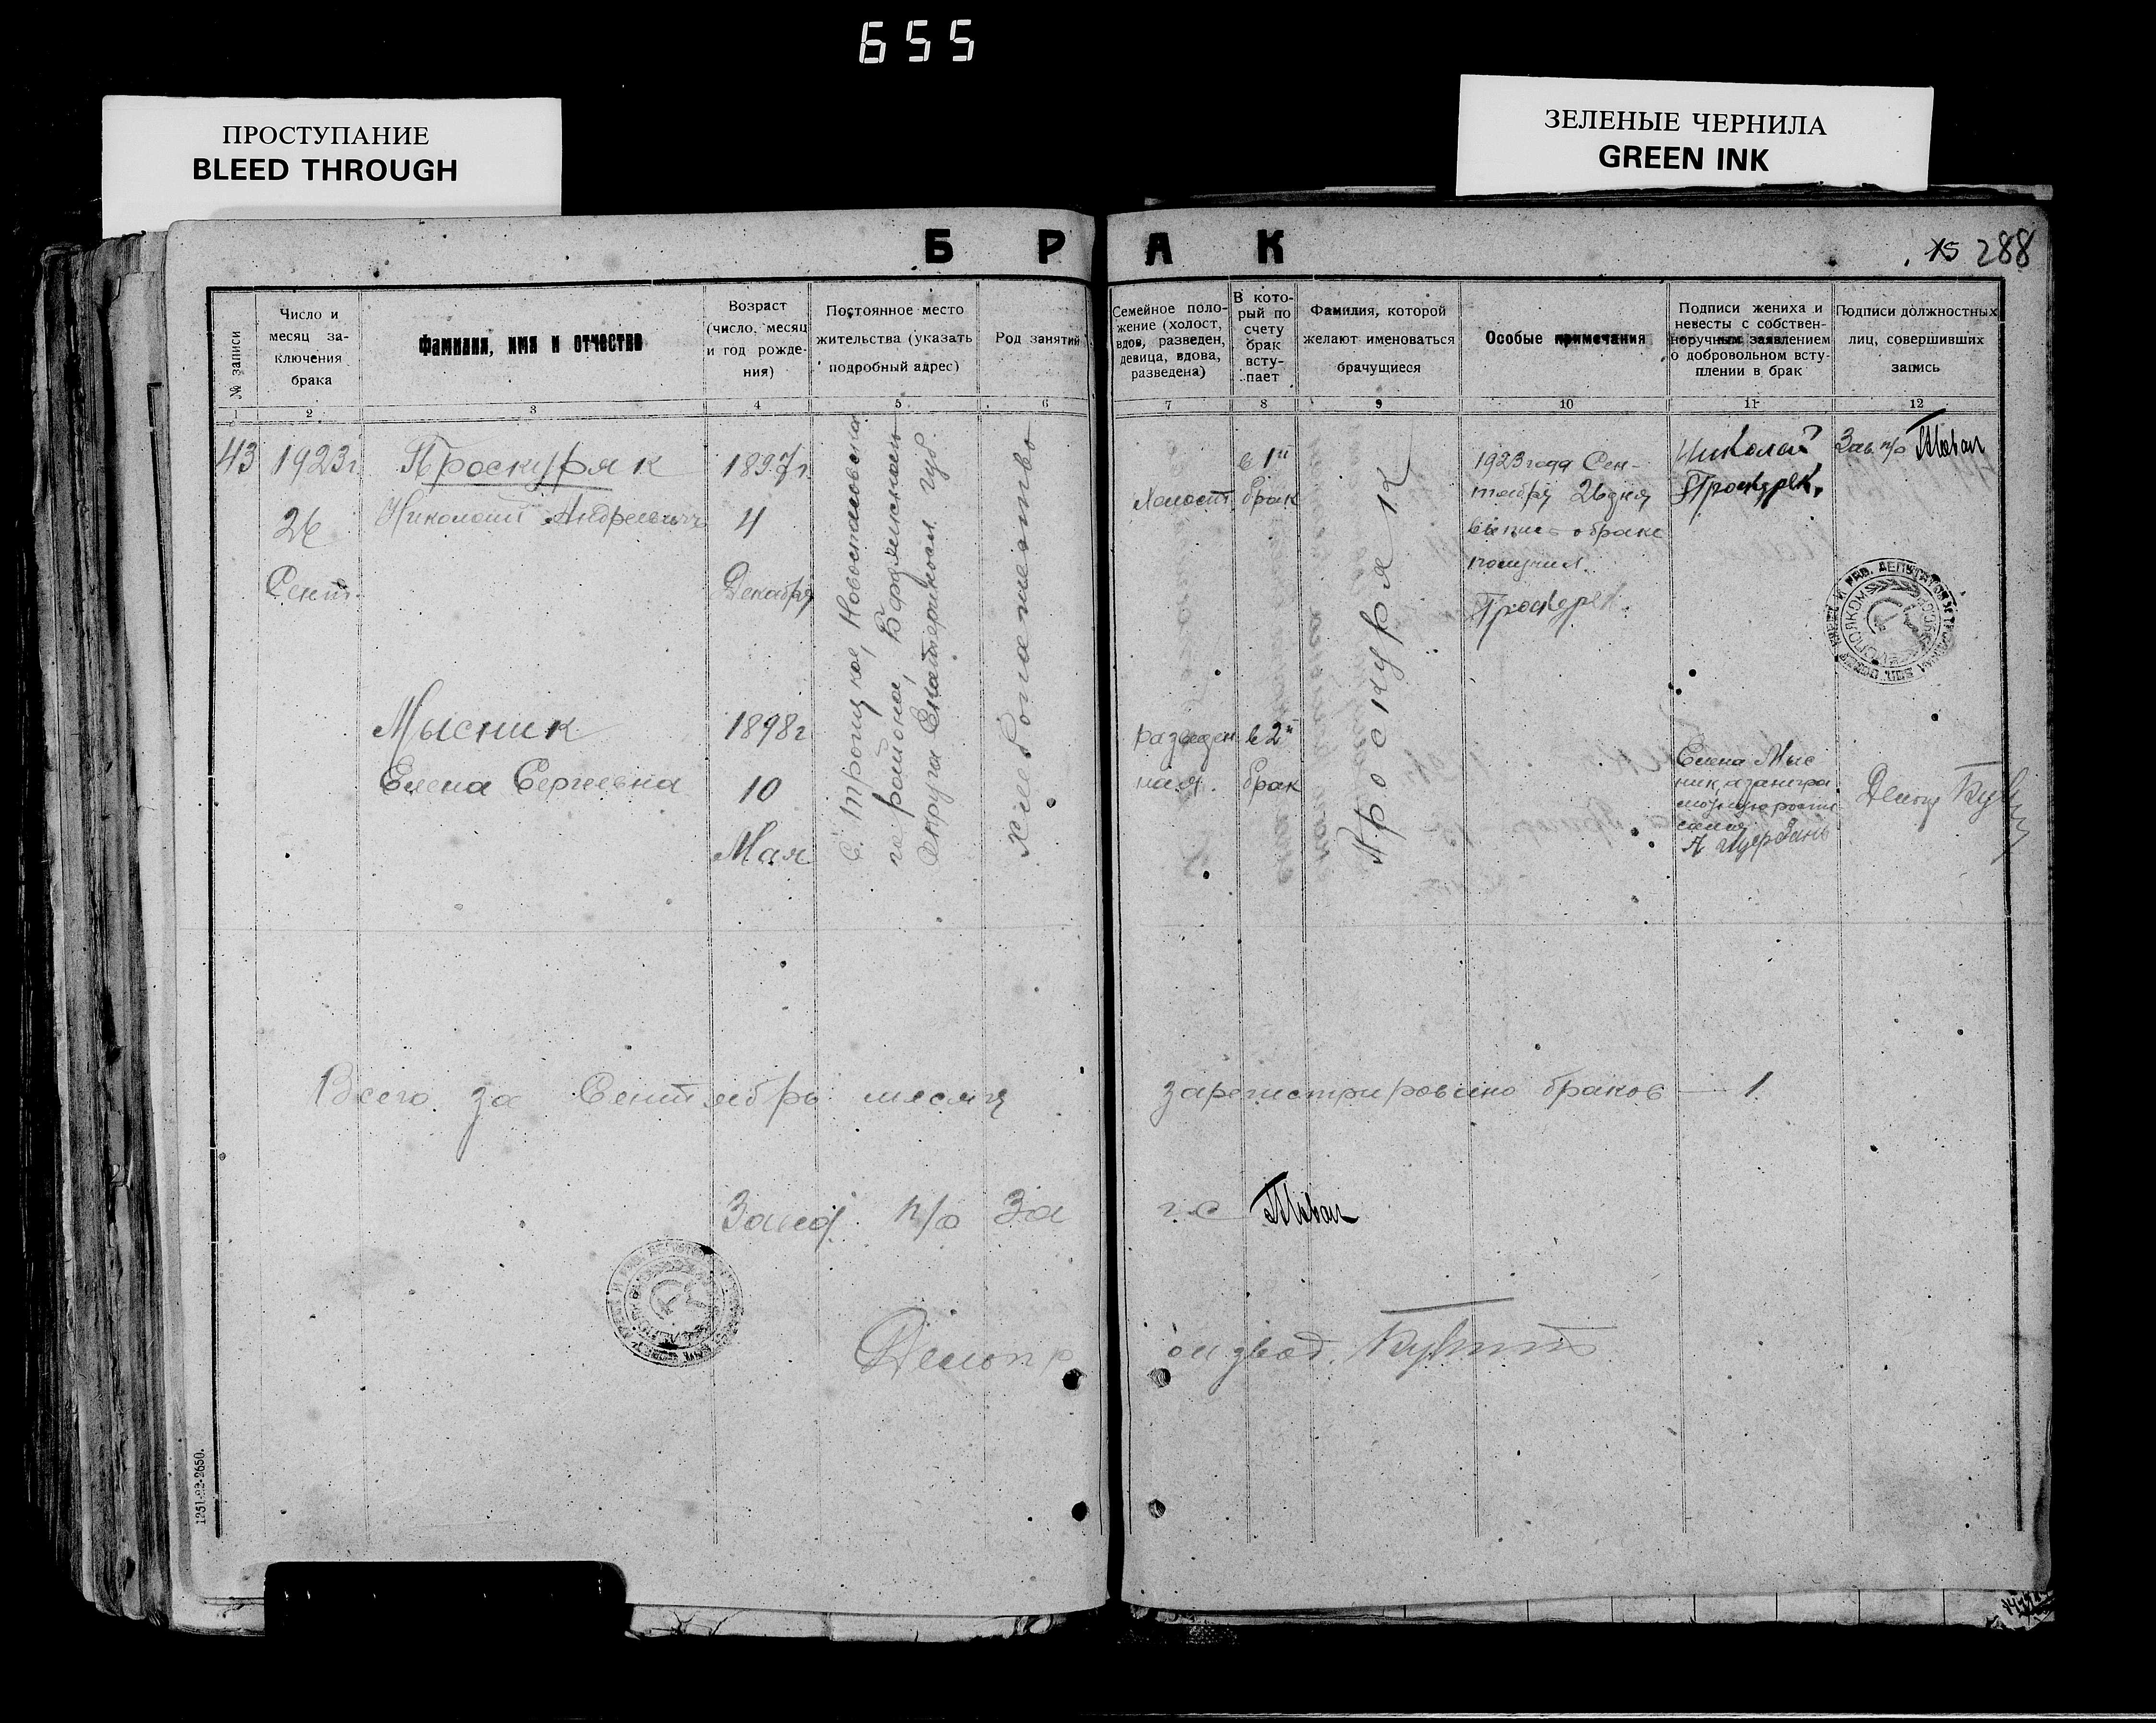 655
ПРОСТУПАНИЕ
BLEED THROUGH
ЗЕЛЕНЫЕ ЧЕРНИЛА
GREEN INK
Б Р А К
15 288
№ записи
Число и
месяц за-
ключения
брака
Фамилия, имя и отчество
Возраст
(число, месяц
и год рожде-
ния)
Постоянное место
жительства (указать
подробный адрес)
Род занятий
Семейное поло-
жение (холост,
вдов, разведен,
девица, вдова,
разведена)
В кото-
рый по
счету
брак
всту-
пает
Фамилия, которой
желают именоваться
брачущиеся
Особые примечания
Подписи жениха и
невесты с собствен-
норучным заявлением
о добровольном всту-
плении в брак
Подписи должностных
лиц, совершивших
запись
1 2 3 4 5 6 7 8 9 10 11 12
43
1923г
26
Сент.
Проскуряк
Николай Андреевич
1897г
4
Декабря
Мысник
Елена Сергеевна
1898г
10
Мая
С. Троицкое, Новостановско
го района,
Округа Екатериносл. губ.
Хлебопашество
Холост
в 1й
брак
разведен
ная.
в 2й
брак
Проскуряк
1923 года Сен-
тября 26 дня
выпись о браке
получил.
Николай
Зав. п/о
Елена Мыс
ник, а за негра
мотную распи
сался
Делопр
Всего за Сентябрь месяц зарегистрировано браков — 1.
Завед. п/о За г. с.
Делопроизвод.
1251-22-2650.